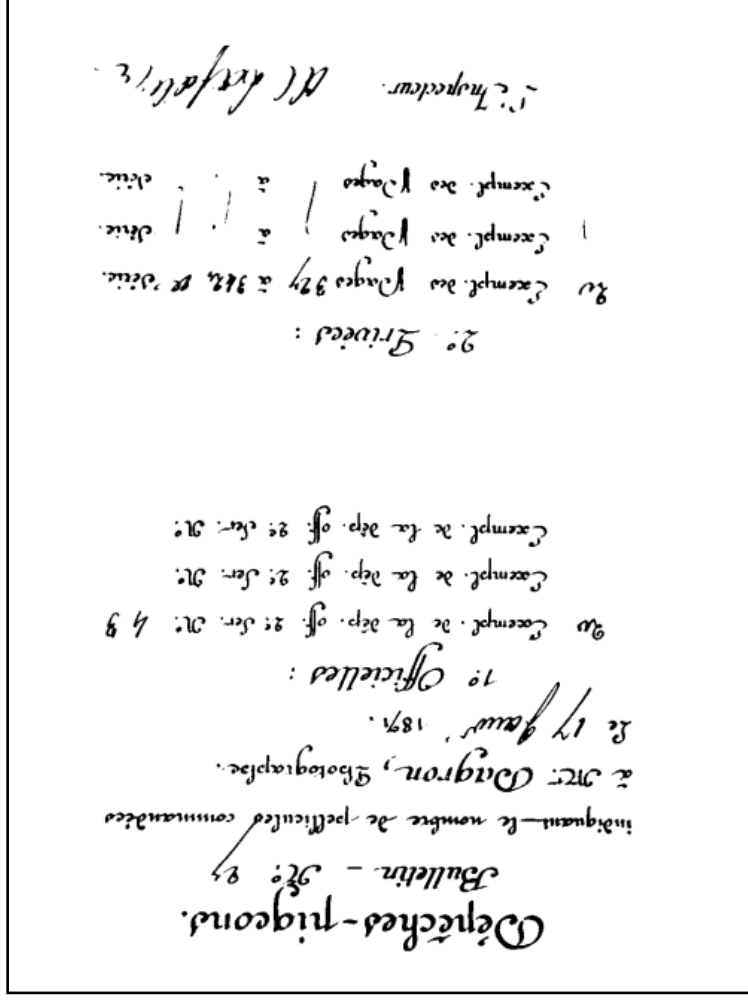 Dépêches-pigeons.
Bulletin – N° 27
indiquant le nombre de pellicules commandées
à Mr. Dagron, Photographe.
Le 17 Janvr 1871.
1° Officielles :
20 Exempl. de la dép. off. 2e Ser. N° 43
Exempl. de la dép. off. 2e Ser. N°
Exempl. de la dép. off. 2e Ser. N°
2° Privées :
20 Exempl. des Pages 327 à 342, Série.
Exempl. des Pages à Série.
Exempl. des Pages à Série.
L'Inspecteur.